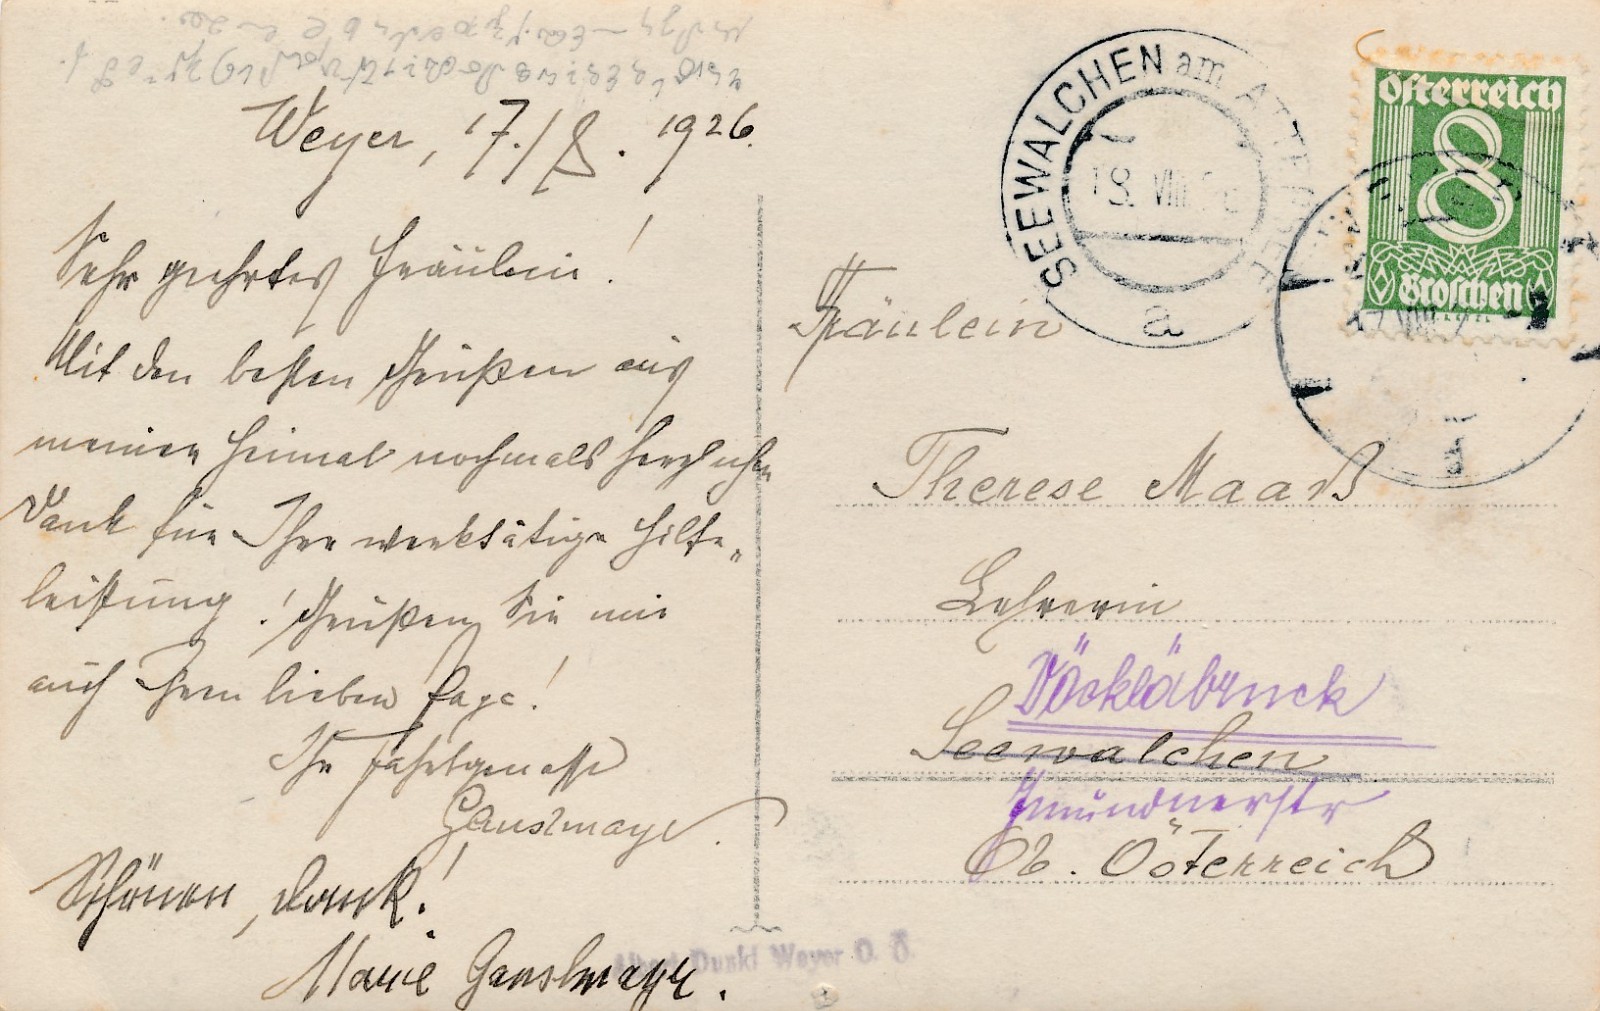 Weyer, 17./8. 1926.
Sehr geehrtes Fräulein!
Mit den besten Grüßen aus
meiner Heimat nochmals herzlichen
Dank für Ihre werktätige Hilfe-
leistung! Grüßen Sie mir
auch Ihren lieben Page!
Ihr Fahrtgenosse
Ganslmayr.
Schönen Dank!
Marie Ganslmayr.
SEEWALCHEN am ATTERSEE
18. VIII. 26
a
Österreich
8
Groschen
17. VIII. 2
Fräulein
Therese Maaß
Lehrerin
Vöcklabruck
Seewalchen
Gmundnerstr
Ob. Österreich
Dunkl Weyer O. Ö.